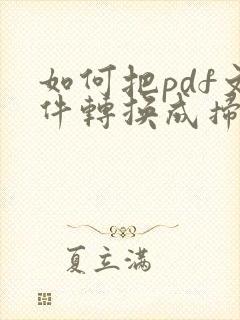 如何把pdf文
件轉換成掃
夏立滿